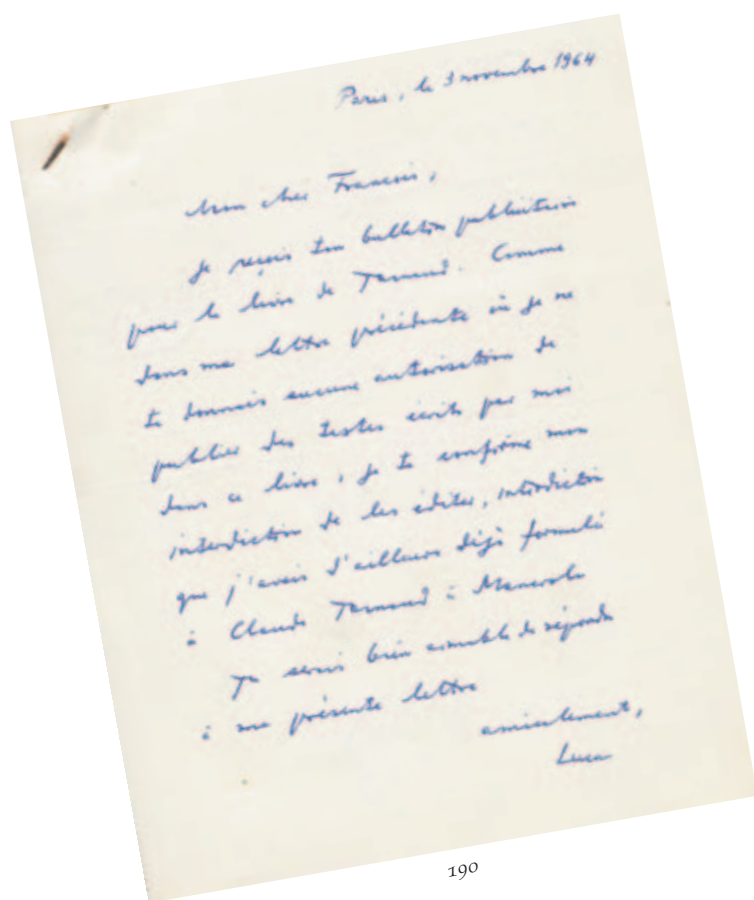 Paris, le 3 novembre 1964
Mon cher Francis,
Je reçois ton bulletin publicitaire
pour le livre de Tarnaud. Comme
dans ma lettre précédente où je ne
te donnais aucune autorisation de
publier des textes écrits par moi
dans ce livre, je te confirme mon
interdiction de les éditer, interdiction
que j'avais d'ailleurs déjà formulé
à Claude Tarnaud à
Tu serais bien aimable de répondre
à ma présente lettre
amicalement,
Luca
190